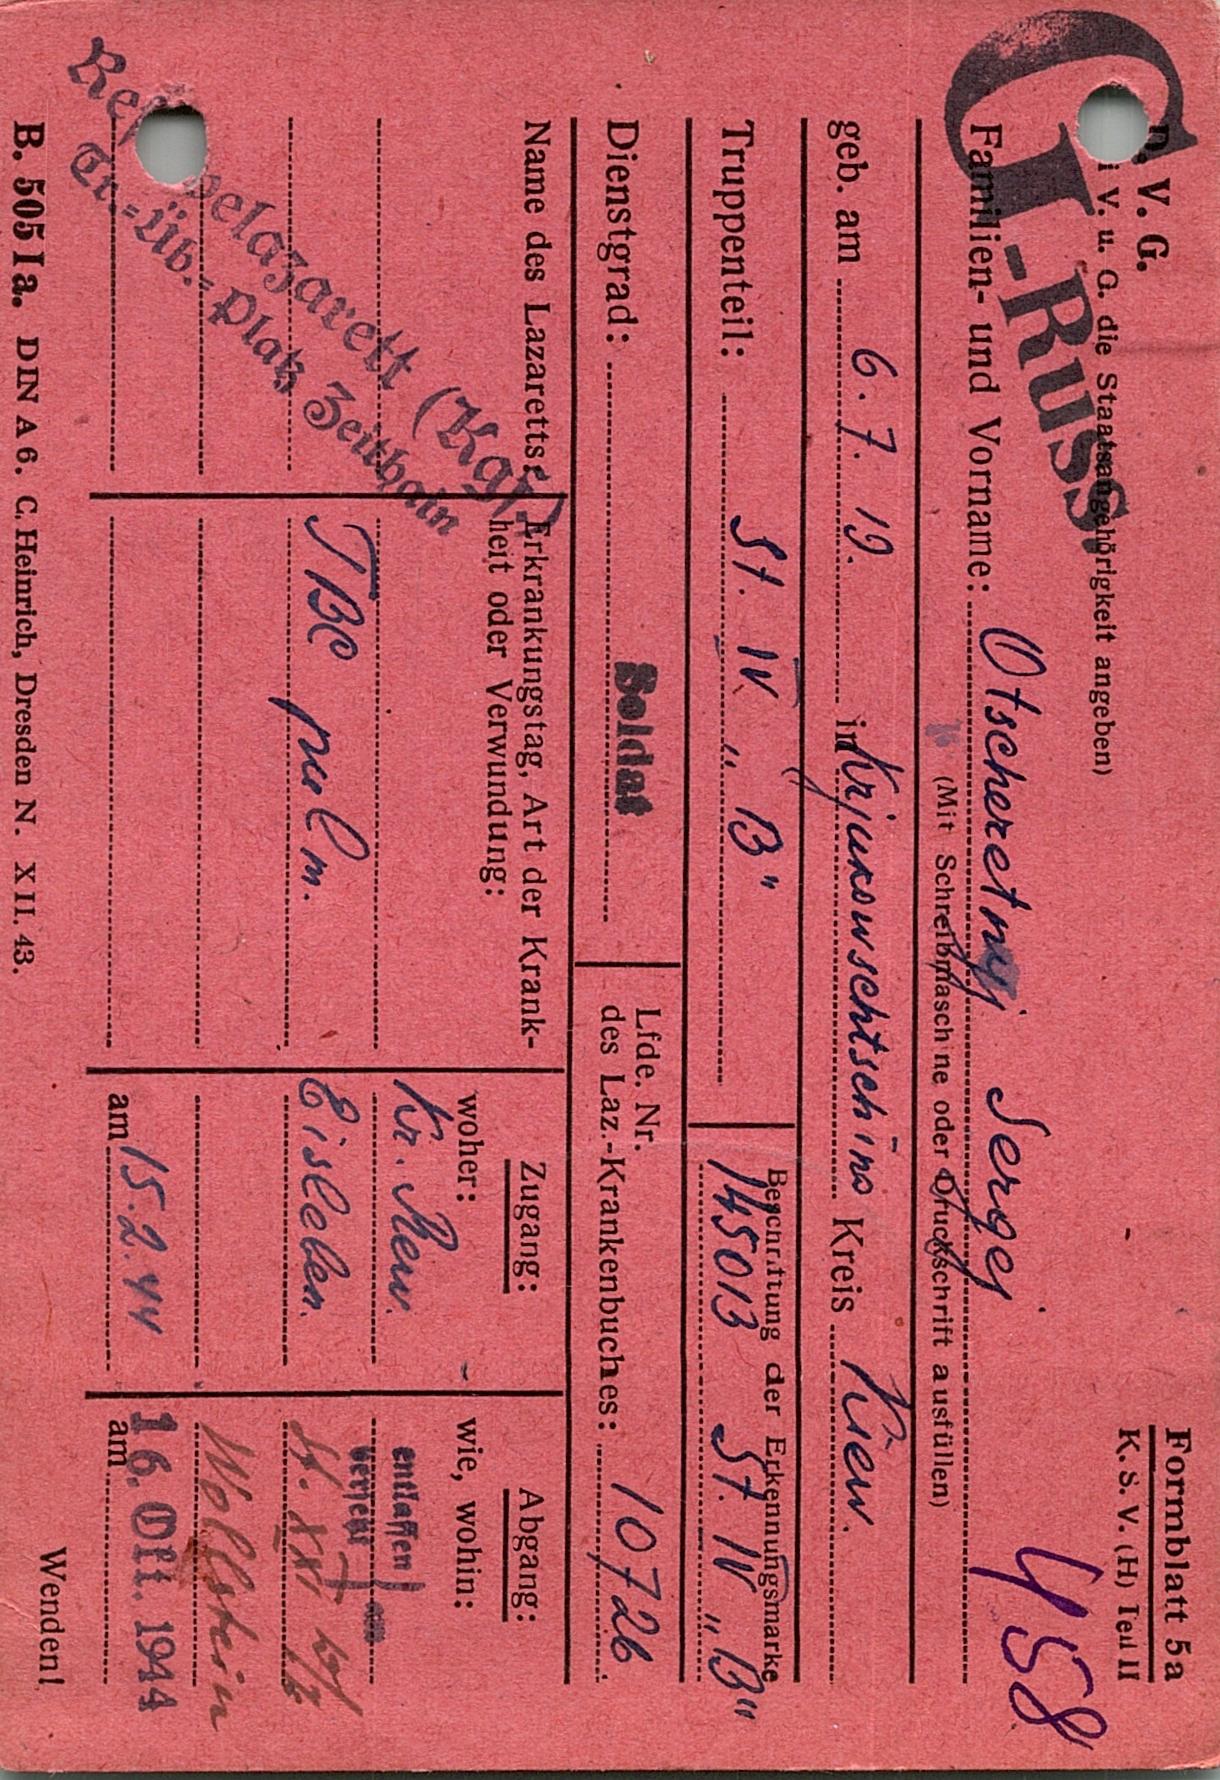 Formblatt 5a
K. S. V. (H) Teil II
458
V. G.
V. u. G. die Staatsangehörigkeit angeben)
G I-Russ.
Familien- und Vorname: Otscheretnyj Sergej
(Mit Schreibmaschine oder Druckschrift ausfüllen)
geb. am 6. 7. 19. in Krjukowschtschina Kreis Kiew.
Truppenteil: St. IV „B"
Beschriftung der Erkennungsmarke
145013 St. IV „B"
Dienstgrad: Soldat
Lfde. Nr.
des Laz.-Krankenbuches: 10726
Name des Lazaretts:
Tr.-Üb.-Platz Zeithain
Erkrankungstag, Art der Krank-
heit oder Verwundung:
TBC pulm.
Zugang:
woher:
Kr. Rev.
Eisleben.
am 15. 2. 44
Abgang:
wie, wohin:
entlassen
verlegt
St. XXI
Wollstein
am 16. Okt. 1944
B. 505 Ia. DIN A 6. C. Heinrich, Dresden N. XII. 43.
Wenden!